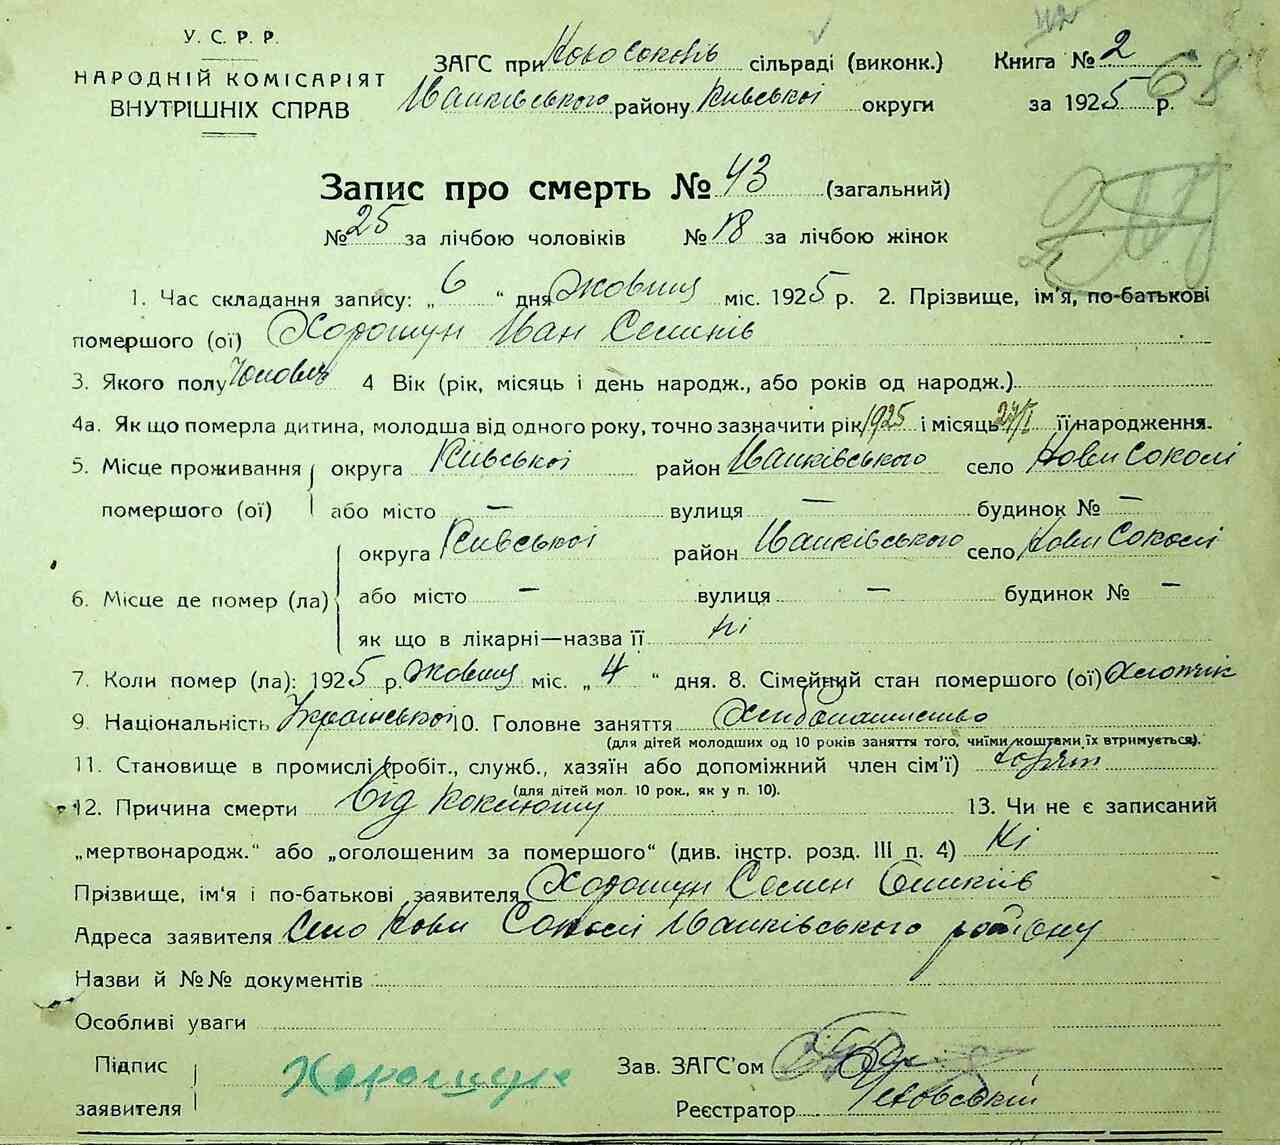 У. С. Р. Р.
НАРОДНІЙ КОМІСАРІЯТ
ВНУТРІШНІХ СПРАВ
ЗАГС при Новосоколів сільраді (виконк.)
Иванківського району Київської округи
Книга № 2
за 1925 р.
68
Запис про смерть № 43 (загальний)
№ 25 за лічбою чоловіків № 18 за лічбою жінок
1. Час складання запису: „ 6 “ дня Жовтня міс. 1925 р. 2. Прізвище, ім'я, по-батькові
помершого (ої) Хорошун Иван Семенів
3. Якого полу Чоловіч 4 Вік (рік, місяць і день народж., або років од народж.)
4а. Як що померла дитина, молодша від одного року, точно зазначити рік 1925 і місяць 27/I її народження.
5. Місце проживання округа Київської район Иванківського село Нови Соколі
помершого (ої) або місто — вулиця — будинок № —
округа Київської район Иванківського село Нови Соколі
6. Місце де помер (ла) або місто — вулиця — будинок № —
як що в лікарні—назва її ні
7. Коли помер (ла): 1925 р. Жовтня міс. „ 4 “ дня. 8. Сімейний стан помершого (ої) Хлопчік
9. Національність Української 10. Головне заняття Хлібопашество
(для дітей молодших од 10 років заняття того, чиїми коштами їх втримується).
11. Становище в промислі (робіт., служб., хазяїн або допоміжний член сім'ї)
(для дітей мол. 10 рок., як у п. 10).
12. Причина смерти Від коклюшу 13. Чи не є записаний
„мертвонародж.“ або „оголошеним за помершого“ (див. інстр. розд. III п. 4) Ні
Прізвище, ім'я і по-батькові заявителя Хорошун Семен
Адреса заявителя Село Нови Соколі Иванківського району
Назви й №№ документів
Особливі уваги
Підпис
заявителя Хорошун
Зав. ЗАГС'ом
Реєстратор